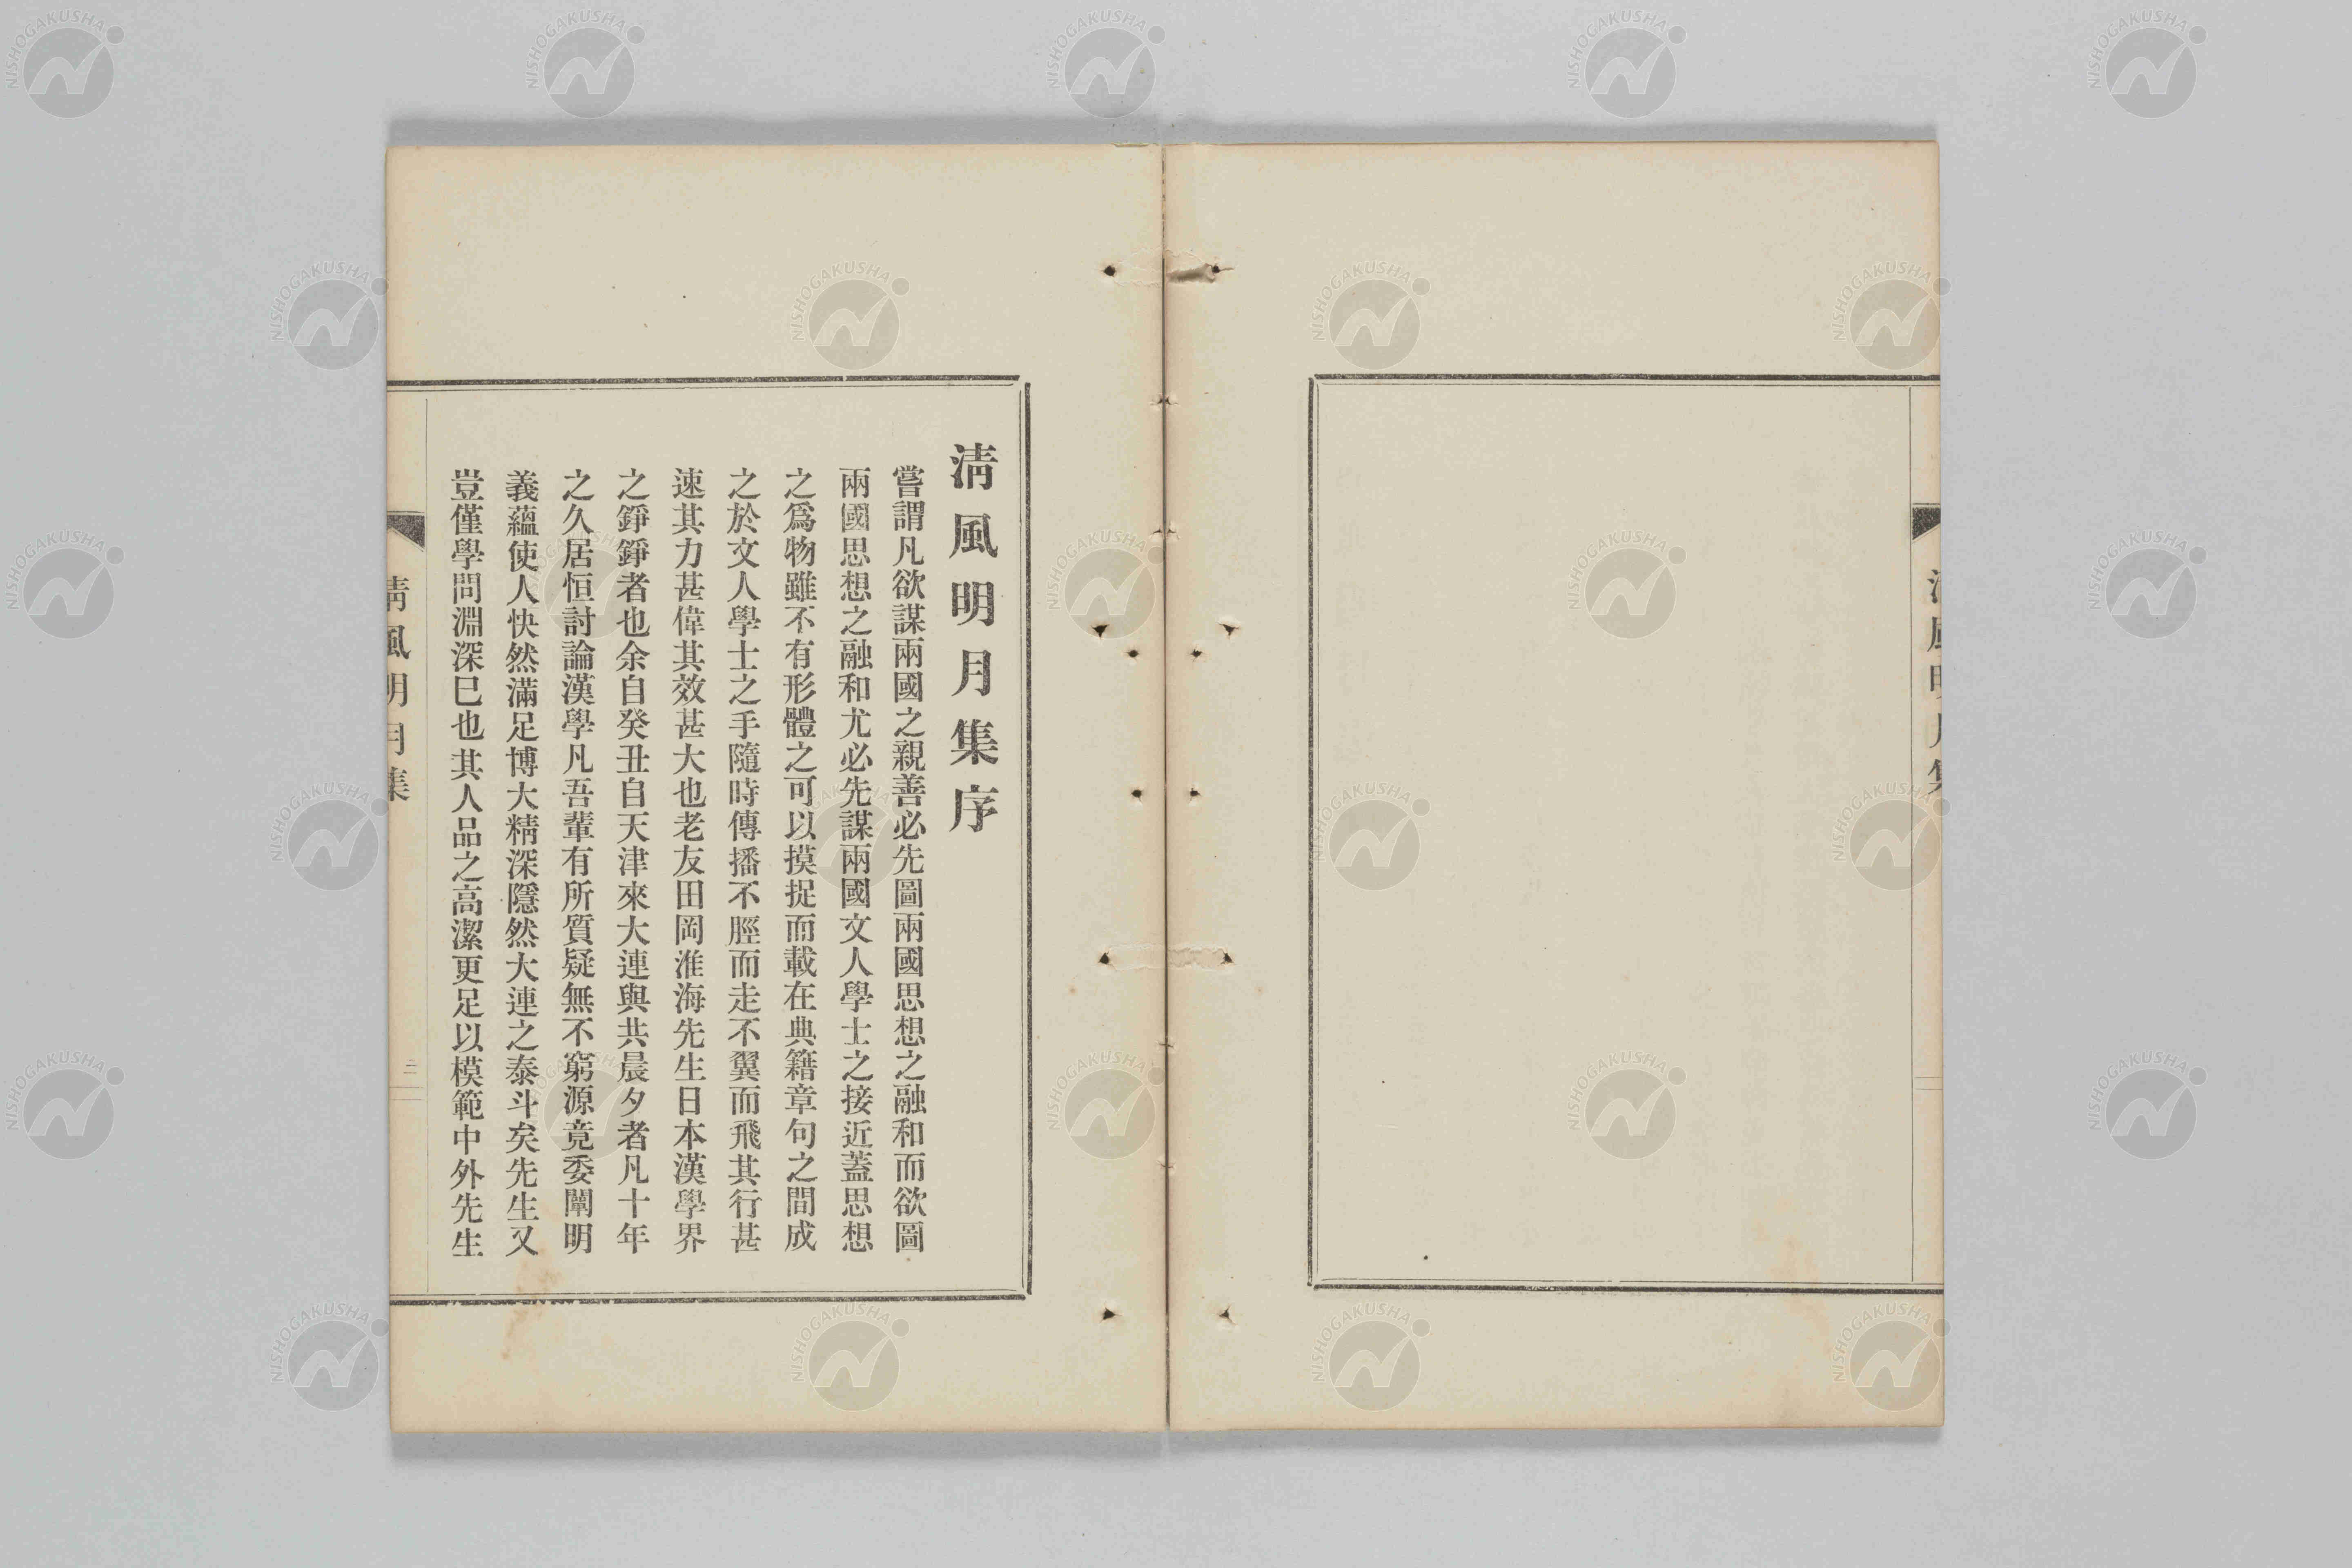 清風明月集
清風明月集序
嘗謂凡欲謀兩國之親善必先圖兩國思想之融和而欲圖
兩國思想之融和尤必先謀兩國文人學士之接近蓋思想
之爲物雖不有形體之可以摸捉而載在典籍章句之間成
之於文人學士之手隨時傳播不脛而走不翼而飛其行甚
速其力甚偉其效甚大也老友田岡淮海先生日本漢學界
之錚錚者也余自癸丑自天津來大連與共晨夕者凡十年
之久居恒討論漢學凡吾輩有所質疑無不窮源竟委闡明
義蘊使人快然滿足博大精深隱然大連之泰斗矣先生又
豈僅學問淵深巳也其人品之高潔更足以模範中外先生
清風明月集
二
NISHOGAKUSHA